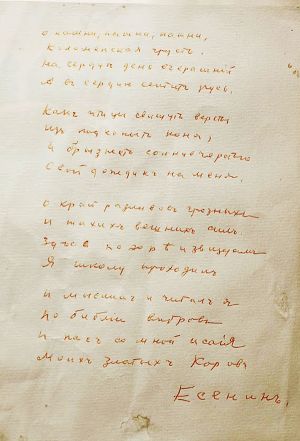 О пашни, пашни, пашни,
Коломенская грусть.
На сердце день вчерашний
А в сердце светит русь.
Какъ птицы свищутъ версты
Из под копыт коня,
И брызжетъ солнце горстью
Свой дождик на меня.
О край разливовъ грозныхъ
И тихихъ вешнихъ силъ.
Здесь по зарѣ и звездамъ
Я школу проходилъ
И мыслил и читалъ я
По библии ветровъ
И пасъ со мной исайя
Моихъ златыхъ Коровъ
Есенинъ.